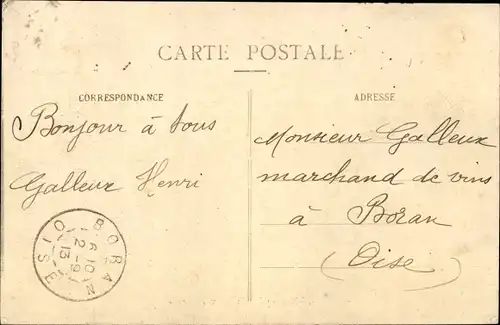 CARTE POSTALE
CORRESPONDANCE
Bonjour à tous
Galleux Henri
ADRESSE
Monsieur Galleux
marchand de vins
à Boran
(Oise)
BORAN
OISE
2 - 9
13